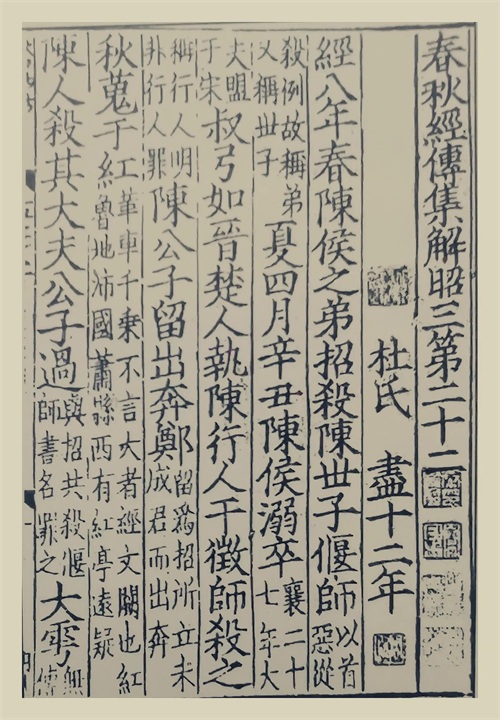 春秋經傳集解昭三第二十二
杜氏 盡十二年
經八年春陳侯之弟招殺陳世子偃師以首惡從
殺例故稱弟又稱世子夏四月辛丑陳侯溺卒襄二十七年大
夫盟于宋叔弓如晉楚人執陳行人干徵師殺之
稱行人明非行人罪陳公子留出奔鄭留爲招所立未成君而出奔
秋蒐于紅革車千乘不言大者經文闕也紅魯地沛國蕭縣西有紅亭遠疑
陳人殺其大夫公子過與招共殺偃師書名罪之大雩無傳